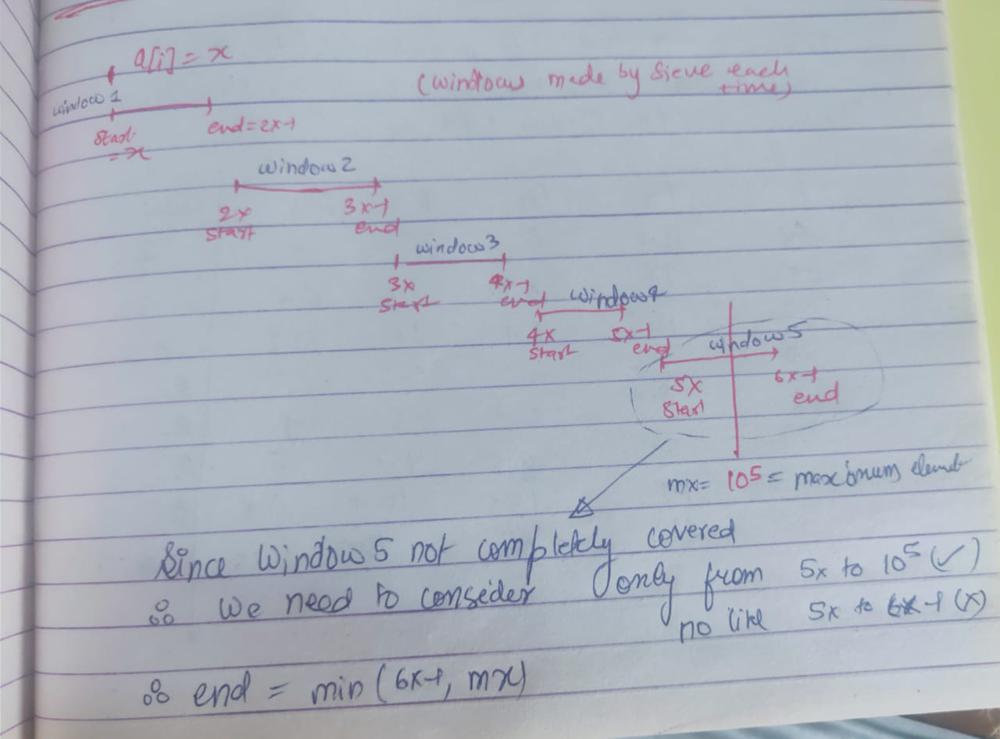 a[i] = x
(windows made by sieve each
time)
window 1
start
= x
end = 2x-1
window 2
2x
start
3x-1
end
window 3
3x
start
4x-1
end
window 4
4x
start
5x-1
end
window 5
5x
start
6x-1
end
mx = 10⁵ = maximum element
Since window 5 not completely covered
∴ we need to consider only from 5x to 10⁵ (✓)
no like 5x to 6x-1 (x)
∴ end = min (6x-1, mx)